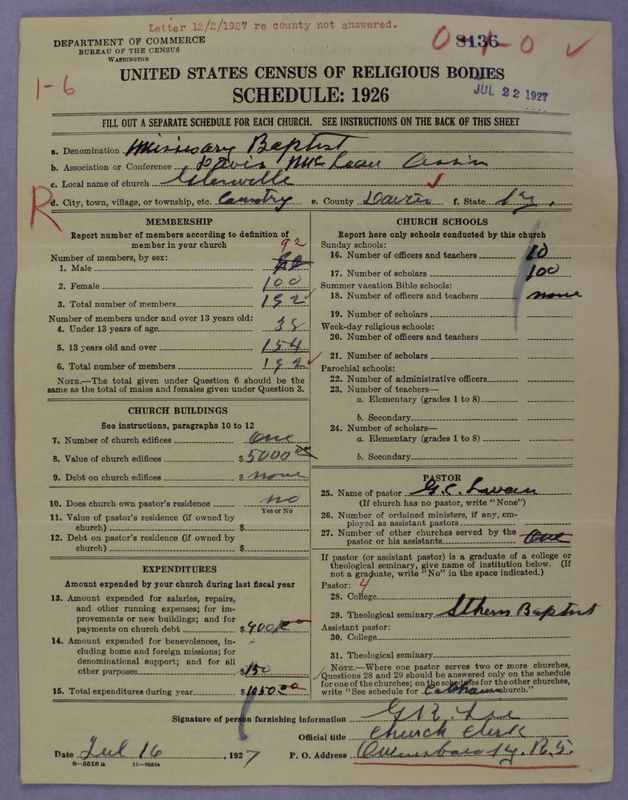 Letter 12/2/1927 re county not answered.
DEPARTMENT OF COMMERCE
BUREAU OF THE CENSUS
WASHINGTON
8136
0-1-0
1-6
JUL 22 1927
UNITED STATES CENSUS OF RELIGIOUS BODIES
SCHEDULE: 1926
FILL OUT A SEPARATE SCHEDULE FOR EACH CHURCH. SEE INSTRUCTIONS ON THE BACK OF THIS SHEET
a. Denomination Missionary Baptist
b. Association or Conference Davis McLean Assin
c. Local name of church Glenville
d. City, town, village, or township, etc. Country e. County Daviess f. State Ky.
R
MEMBERSHIP
Report number of members according to definition of member in your church
Number of members, by sex: 92
1. Male
2. Female 100
3. Total number of members 192
Number of members under and over 13 years old:
4. Under 13 years of age 38
5. 13 years old and over 154
6. Total number of members 192
NOTE.—The total given under Question 6 should be the same as the total of males and females given under Question 3.
CHURCH BUILDINGS
See instructions, paragraphs 10 to 12
7. Number of church edifices One
8. Value of church edifices $5000.00
9. Debt on church edifices $ none
10. Does church own pastor's residence no
Yes or No
11. Value of pastor's residence (if owned by church) $
12. Debt on pastor's residence (if owned by church) $
EXPENDITURES
Amount expended by your church during last fiscal year
13. Amount expended for salaries, repairs, and other running expenses; for improvements or new buildings; and for payments on church debt $900.00
14. Amount expended for benevolences, including home and foreign missions; for denominational support; and for all other purposes $150
15. Total expenditures during year $1050.00
CHURCH SCHOOLS
Report here only schools conducted by this church
Sunday schools:
16. Number of officers and teachers 10
17. Number of scholars 100
Summer vacation Bible schools:
18. Number of officers and teachers none
19. Number of scholars
Week-day religious schools:
20. Number of officers and teachers
21. Number of scholars
Parochial schools:
22. Number of administrative officers
23. Number of teachers—
a. Elementary (grades 1 to 8)
b. Secondary
24. Number of scholars—
a. Elementary (grades 1 to 8)
b. Secondary
PASTOR
25. Name of pastor G.C.
(If church has no pastor, write "None")
26. Number of ordained ministers, if any, employed as assistant pastors
27. Number of other churches served by the pastor or his assistants One
If pastor (or assistant pastor) is a graduate of a college or theological seminary, give name of institution below. (If not a graduate, write "No" in the space indicated.)
Pastor: 4
28. College
29. Theological seminary Sthern Baptist
Assistant pastor:
30. College
31. Theological seminary
NOTE.—Where one pastor serves two or more churches, Questions 28 and 29 should be answered only on the schedule for one of the churches; on the schedules for the other churches, write "See schedule for Calhoun church."
Signature of person furnishing information G.R. Lee
Official title Church Clerk
Date Jul 16, 1927 P. O. Address Owensboro Ky. R.5.
8-3518 a 11-9054a